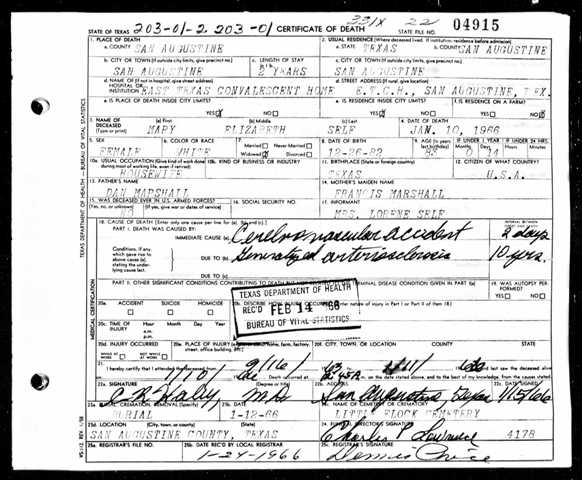 203-01-2 203-01 331X 22
STATE OF TEXAS CERTIFICATE OF DEATH STATE FILE NO. 04915
1. PLACE OF DEATH 2. USUAL RESIDENCE (Where deceased lived. If institution, residence before admission)
a. COUNTY SAN AUGUSTINE a. STATE TEXAS b. COUNTY SAN AUGUSTINE
b. CITY OR TOWN (If outside city limits, give precinct no.) c. LENGTH OF STAY c. CITY OR TOWN (If outside city limits, give precinct no.)
SAN AUGUSTINE 2 YEARS SAN AUGUSTINE
d. NAME OF (If not in hospital, give street address) d. STREET ADDRESS (If rural, give location)
HOSPITAL OR INSTITUTION EAST TEXAS CONVALESCENT HOME E.T.C.H., SAN AUGUSTINE, TEX.
e. IS PLACE OF DEATH INSIDE CITY LIMITS? e. IS RESIDENCE INSIDE CITY LIMITS? f. IS RESIDENCE ON A FARM?
YES NO YES NO YES NO
3. NAME OF DECEASED (a) First (b) Middle (c) Last 4. DATE OF DEATH
(Type or print) MARY ELIZABETH SELF JAN. 10, 1966
5. SEX 6. COLOR OR RACE 7. Married Never Married 8. DATE OF BIRTH 9. AGE IF UNDER 1 YEAR IF UNDER 24 HRS.
FEMALE WHITE Widowed Divorced 12-26-82 83 0 14
10a. USUAL OCCUPATION (Give kind of work done 10b. KIND OF BUSINESS OR INDUSTRY 11. BIRTHPLACE (State or foreign country) 12. CITIZEN OF WHAT COUNTRY?
HOUSEWIFE TEXAS U.S.A.
13. FATHER'S NAME 14. MOTHER'S MAIDEN NAME
DAN MARSHALL FRANCIS MARSHALL
15. WAS DECEASED EVER IN U.S. ARMED FORCES? 16. SOCIAL SECURITY NO. 17. INFORMANT
(Yes, no, or unknown) (If yes, give war or dates of service)
NO MRS. LORENE SELF
18. CAUSE OF DEATH (Enter only one cause per line for (a), (b), and (c).) INTERVAL BETWEEN
PART I. DEATH WAS CAUSED BY:
IMMEDIATE CAUSE (a) Cerebrovascular accident 2 days
Conditions, if any, which gave rise to above cause (a), stating the underlying cause last. DUE TO (b) Generalized arteriosclerosis 10 yrs.
DUE TO (c)
PART II. OTHER SIGNIFICANT CONDITIONS CONTRIBUTING TO DEATH BUT NOT DISEASE CONDITION GIVEN IN PART I(a) 19. WAS AUTOPSY PERFORMED?
YES NO
TEXAS DEPARTMENT OF HEALTH
REC'D FEB 14 '66
BUREAU OF VITAL STATISTICS
20a. ACCIDENT SUICIDE HOMICIDE 20b. DESCRIBE HOW INJURY OCCURRED
20c. TIME OF INJURY Hour Month Day Year
a.m.
p.m.
20d. INJURY OCCURRED 20e. PLACE OF INJURY (e.g., in or about home, farm, factory, street, office building, etc.) 20f. CITY, TOWN, OR LOCATION COUNTY STATE
WHILE AT WORK NOT WHILE AT WORK
21. I hereby certify that I attended the deceased from 9/16
22a. SIGNATURE 22b. ADDRESS 22c. DATE SIGNED
M.D. San Augustine Texas 1/15/66
23a. BURIAL, CREMATION, REMOVAL (Specify) 23b. DATE 23c. NAME OF CEMETERY OR CREMATORY
BURIAL 1-12-66 LITTLE FLOCK CEMETERY
23d. LOCATION (City, town, or county) (State) 24. FUNERAL DIRECTOR'S SIGNATURE
SAN AUGUSTINE COUNTY, TEXAS 4178
25a. REGISTRAR'S FILE NO. 25b. DATE REC'D BY LOCAL REGISTRAR 25c. REGISTRAR'S SIGNATURE
1-24-1966
TEXAS DEPARTMENT OF HEALTH — BUREAU OF VITAL STATISTICS
MEDICAL CERTIFICATION